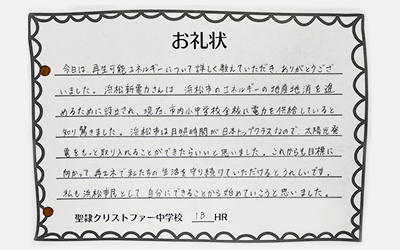 お礼状
今日は、再生可能エネルギーについて詳しく教えていただき、ありがとうござ
いました。浜松新電力さんは、浜松市のエネルギーの地産地消を進
めるために設立され、現在、市内小中学校全校に電力を供給していると
知り驚きました。浜松市は日照時間が日本トップクラスなので、太陽光発
電をもっと取り入れることができたらいいと思いました。これからも目標に
向かって、再エネで私たちの生活を守り続けていただけるとうれしいです。
私も浜松市民として、自分にできることから始めていこうと思いました。
聖隷クリストファー中学校 1B HR